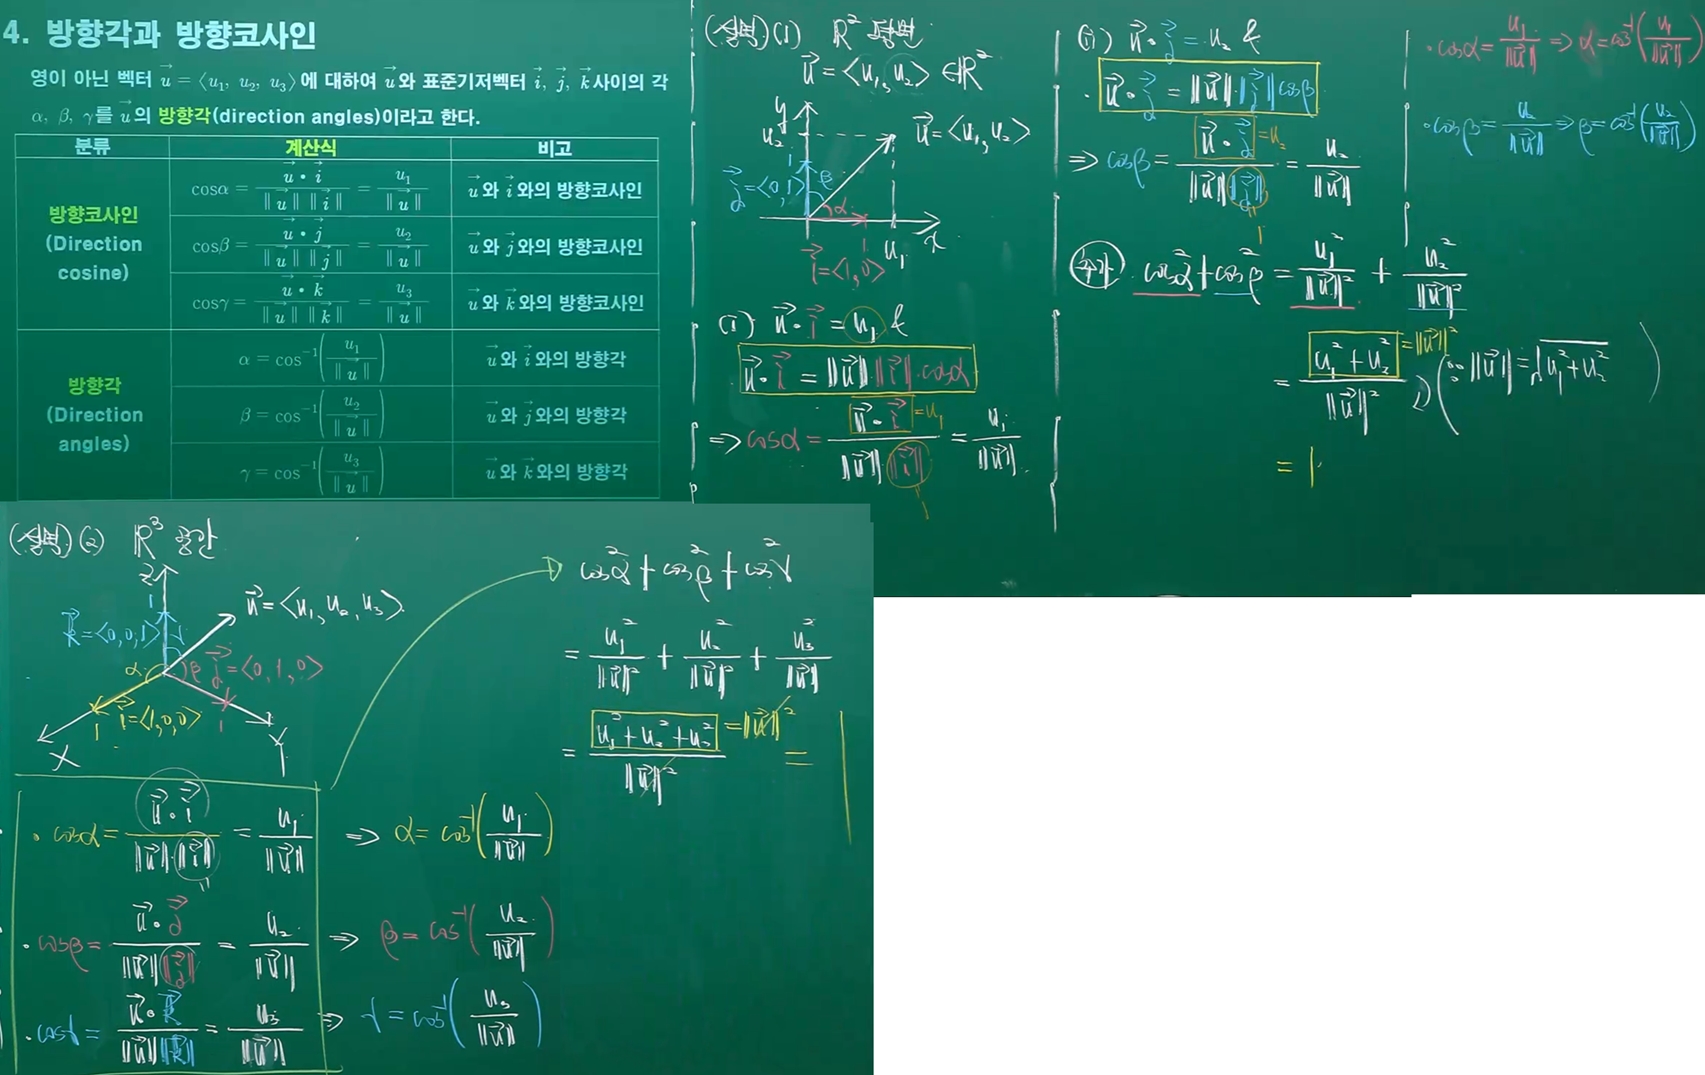 4. 방향각과 방향코사인
영이 아닌 벡터 u⃗ = ⟨u₁, u₂, u₃⟩에 대하여 u⃗와 표준기저벡터 i⃗, j⃗, k⃗사이의 각
α, β, γ를 u⃗의 방향각(direction angles)이라고 한다.
분류 계산식 비고
방향코사인 (Direction cosine)
cosα = u⃗•i⃗ / ‖u⃗‖‖i⃗‖ = u₁ / ‖u⃗‖ u⃗와 i⃗와의 방향코사인
cosβ = u⃗•j⃗ / ‖u⃗‖‖j⃗‖ = u₂ / ‖u⃗‖ u⃗와 j⃗와의 방향코사인
cosγ = u⃗•k⃗ / ‖u⃗‖‖k⃗‖ = u₃ / ‖u⃗‖ u⃗와 k⃗와의 방향코사인
방향각 (Direction angles)
α = cos⁻¹(u₁ / ‖u⃗‖) u⃗와 i⃗와의 방향각
β = cos⁻¹(u₂ / ‖u⃗‖) u⃗와 j⃗와의 방향각
γ = cos⁻¹(u₃ / ‖u⃗‖) u⃗와 k⃗와의 방향각
(설명) (1) ℝ² 평면
u⃗ = ⟨u₁, u₂⟩ ∈ ℝ²
y
u₂
u⃗ = ⟨u₁, u₂⟩
1
j⃗ = ⟨0, 1⟩
β
α
1
u₁
x
i⃗ = ⟨1, 0⟩
(i) u⃗•i⃗ = u₁ &
u⃗•i⃗ = ‖u⃗‖•‖i⃗‖•cosα
⇒ cosα = u⃗•i⃗ / ‖u⃗‖‖i⃗‖ = u₁ / ‖u⃗‖
= u₁
1
(ii) u⃗•j⃗ = u₂ &
u⃗•j⃗ = ‖u⃗‖•‖j⃗‖cosβ
⇒ cosβ = u⃗•j⃗ / ‖u⃗‖‖j⃗‖ = u₂ / ‖u⃗‖
= u₂
1
• cosα = u₁ / ‖u⃗‖ ⇒ α = cos⁻¹(u₁ / ‖u⃗‖)
• cosβ = u₂ / ‖u⃗‖ ⇒ β = cos⁻¹(u₂ / ‖u⃗‖)
cos²α + cos²β = u₁² / ‖u⃗‖² + u₂² / ‖u⃗‖²
= u₁² + u₂² / ‖u⃗‖² (∵ ‖u⃗‖ = √u₁² + u₂²)
= ‖u⃗‖²
= 1
(설명) (2) ℝ³ 공간
Z
1
u⃗ = ⟨u₁, u₂, u₃⟩
k⃗ = ⟨0, 0, 1⟩
γ
α
β
j⃗ = ⟨0, 1, 0⟩
i⃗ = ⟨1, 0, 0⟩
1
1
X
Y
• cosα = u⃗•i⃗ / ‖u⃗‖•‖i⃗‖ = u₁ / ‖u⃗‖ ⇒ α = cos⁻¹(u₁ / ‖u⃗‖)
• cosβ = u⃗•j⃗ / ‖u⃗‖‖j⃗‖ = u₂ / ‖u⃗‖ ⇒ β = cos⁻¹(u₂ / ‖u⃗‖)
• cosγ = u⃗•k⃗ / ‖u⃗‖‖k⃗‖ = u₃ / ‖u⃗‖ ⇒ γ = cos⁻¹(u₃ / ‖u⃗‖)
cos²α + cos²β + cos²γ
= u₁² / ‖u⃗‖² + u₂² / ‖u⃗‖² + u₃² / ‖u⃗‖
= u₁² + u₂² + u₃² / ‖u⃗‖² = 1
= ‖u⃗‖²